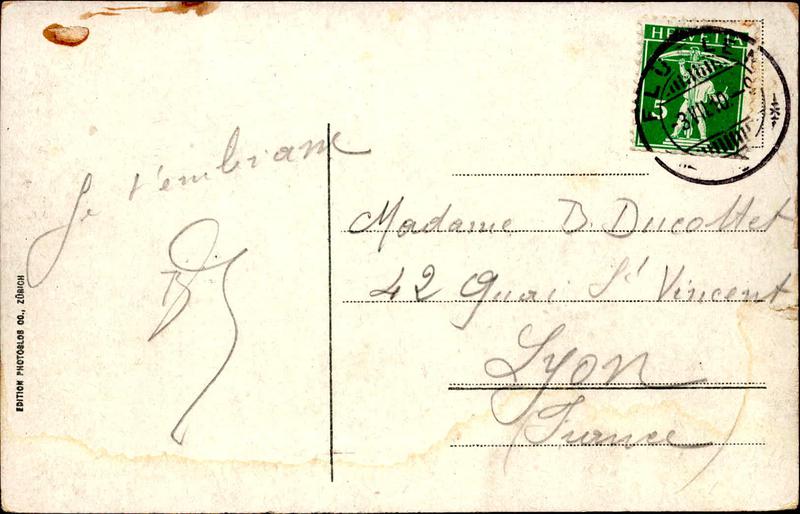 HELVETIA
5
-3.VII.10.
Je t'embrasse
Madame B. Ducottet
42 Quai St Vincent
Lyon
(France)
EDITION PHOTOGLOB CO., ZÜRICH